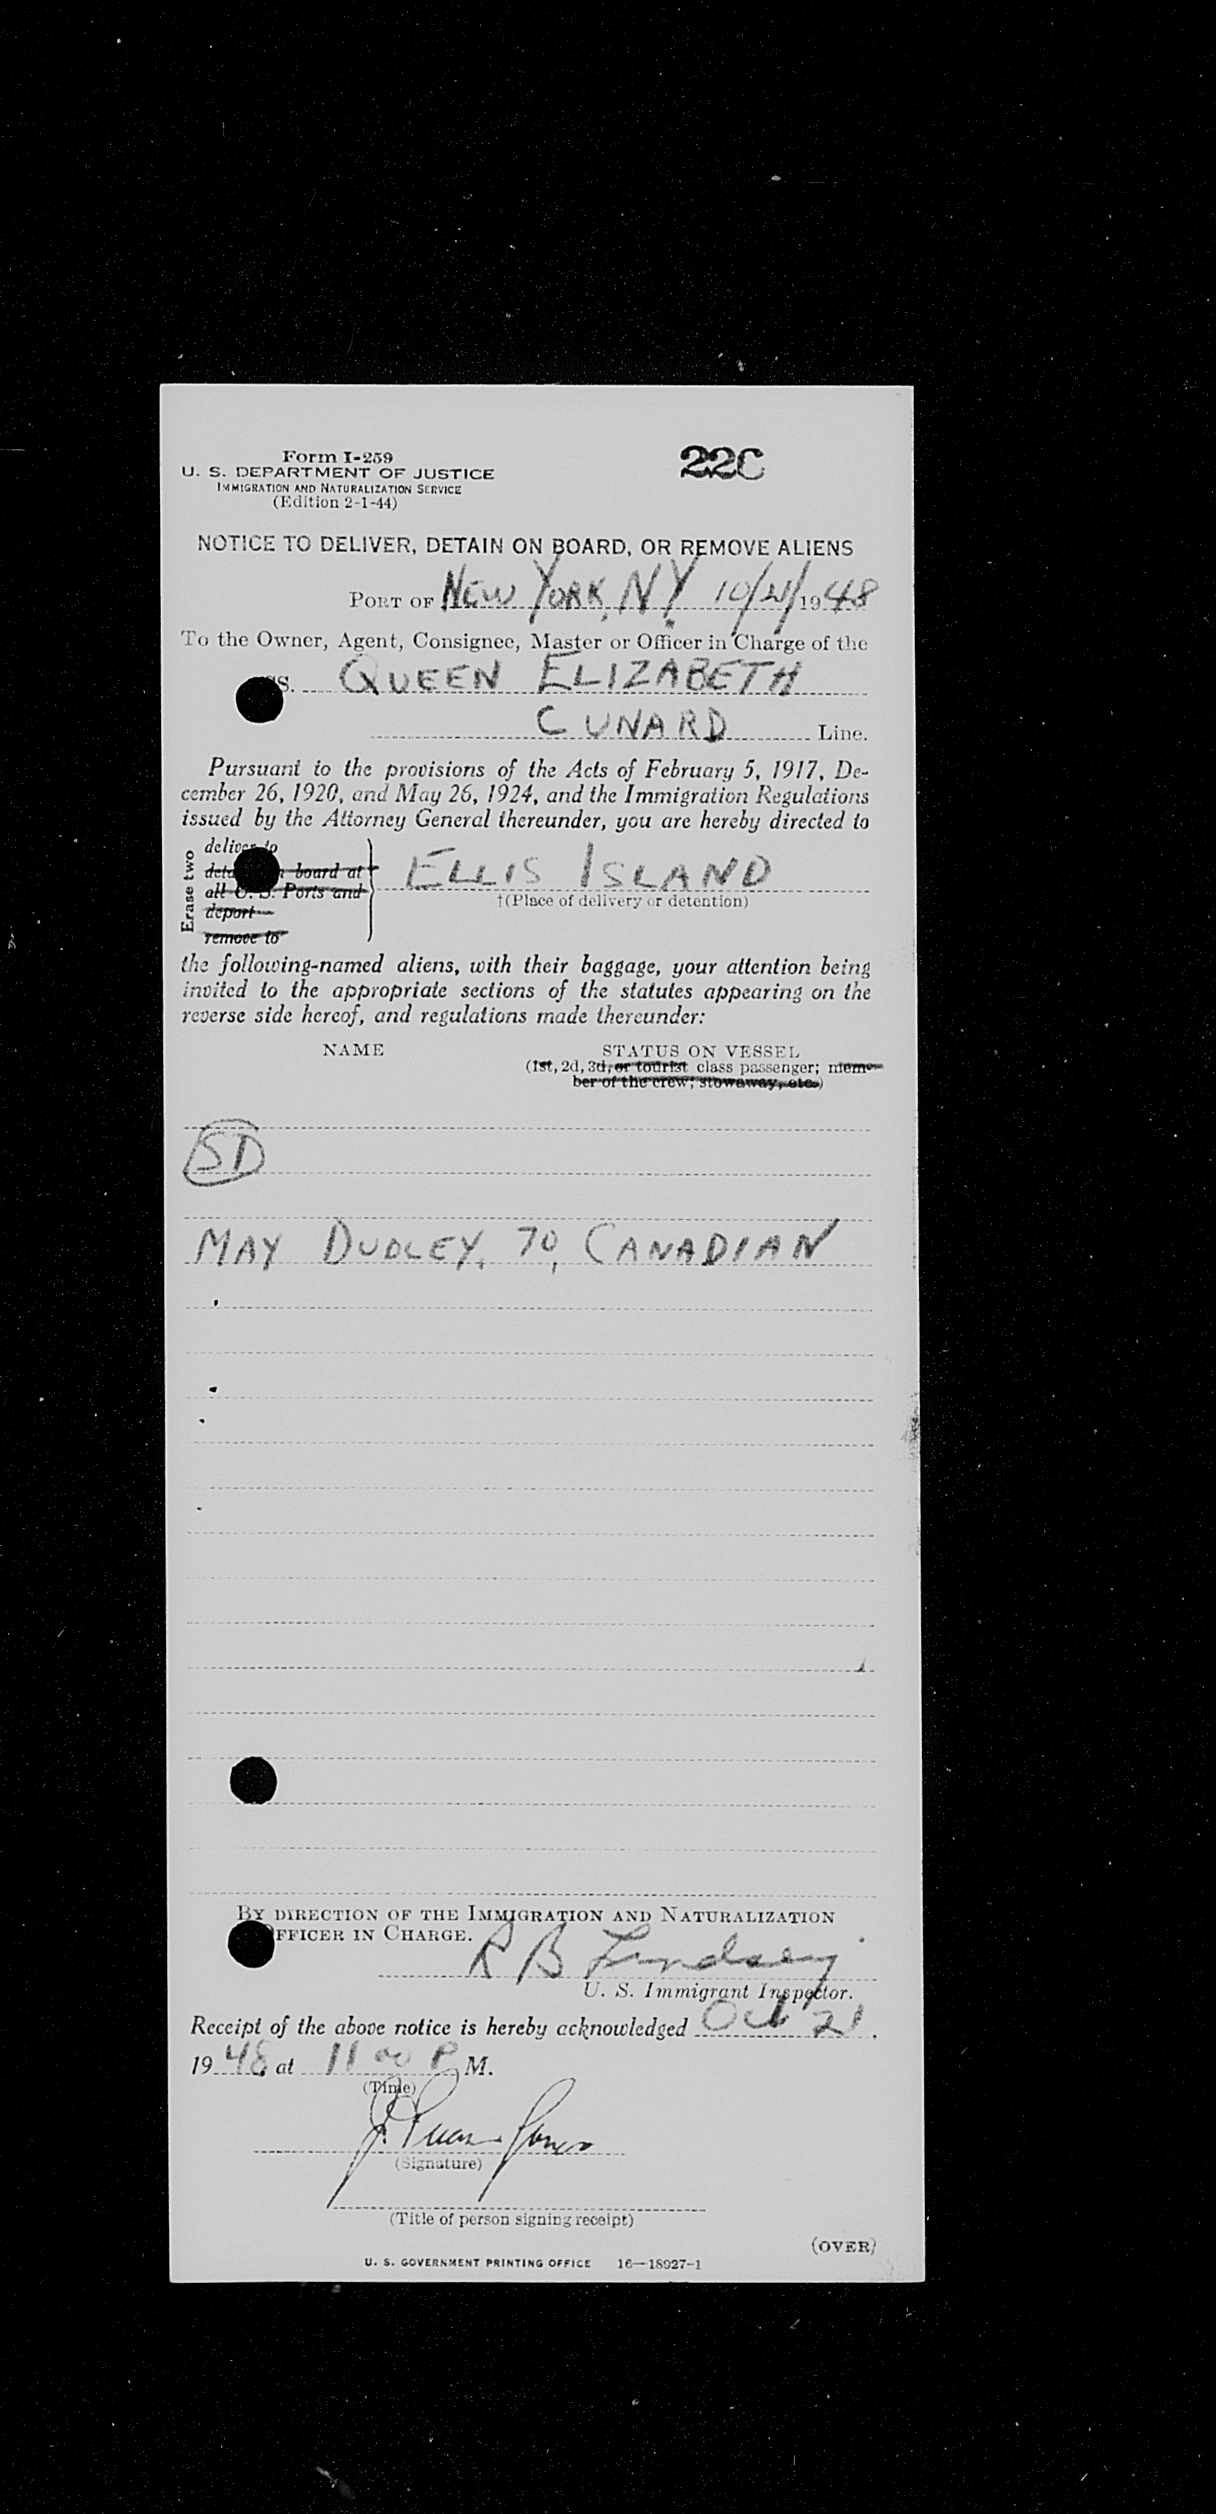 Form I-259
22C
U. S. DEPARTMENT OF JUSTICE
IMMIGRATION AND NATURALIZATION SERVICE
(Edition 2-1-44)
NOTICE TO DELIVER, DETAIN ON BOARD, OR REMOVE ALIENS
PORT OF NEW YORK, N.Y. 10/21/1948
To the Owner, Agent, Consignee, Master or Officer in Charge of the
SS. QUEEN ELIZABETH
CUNARD Line.
Pursuant to the provisions of the Acts of February 5, 1917, De-
cember 26, 1920, and May 26, 1924, and the Immigration Regulations
issued by the Attorney General thereunder, you are hereby directed to
Erase two
deliver to
board at
all U. S. Ports and
deport
remove to
ELLIS ISLAND
†(Place of delivery or detention)
the following-named aliens, with their baggage, your attention being
invited to the appropriate sections of the statutes appearing on the
reverse side hereof, and regulations made thereunder:
NAME STATUS ON VESSEL
(1st, 2d, 3d, or tourist class passenger; mem-
ber of the crew; stowaway, etc.)
SD
MAY DUDLEY, 70, CANADIAN
BY DIRECTION OF THE IMMIGRATION AND NATURALIZATION
OFFICER IN CHARGE.
R B Lindsey
U. S. Immigrant Inspector.
Receipt of the above notice is hereby acknowledged Oct 21,
1948, at 11 00 P M.
(Time)
(Signature)
(Title of person signing receipt)
(OVER)
U. S. GOVERNMENT PRINTING OFFICE 16—18027-1